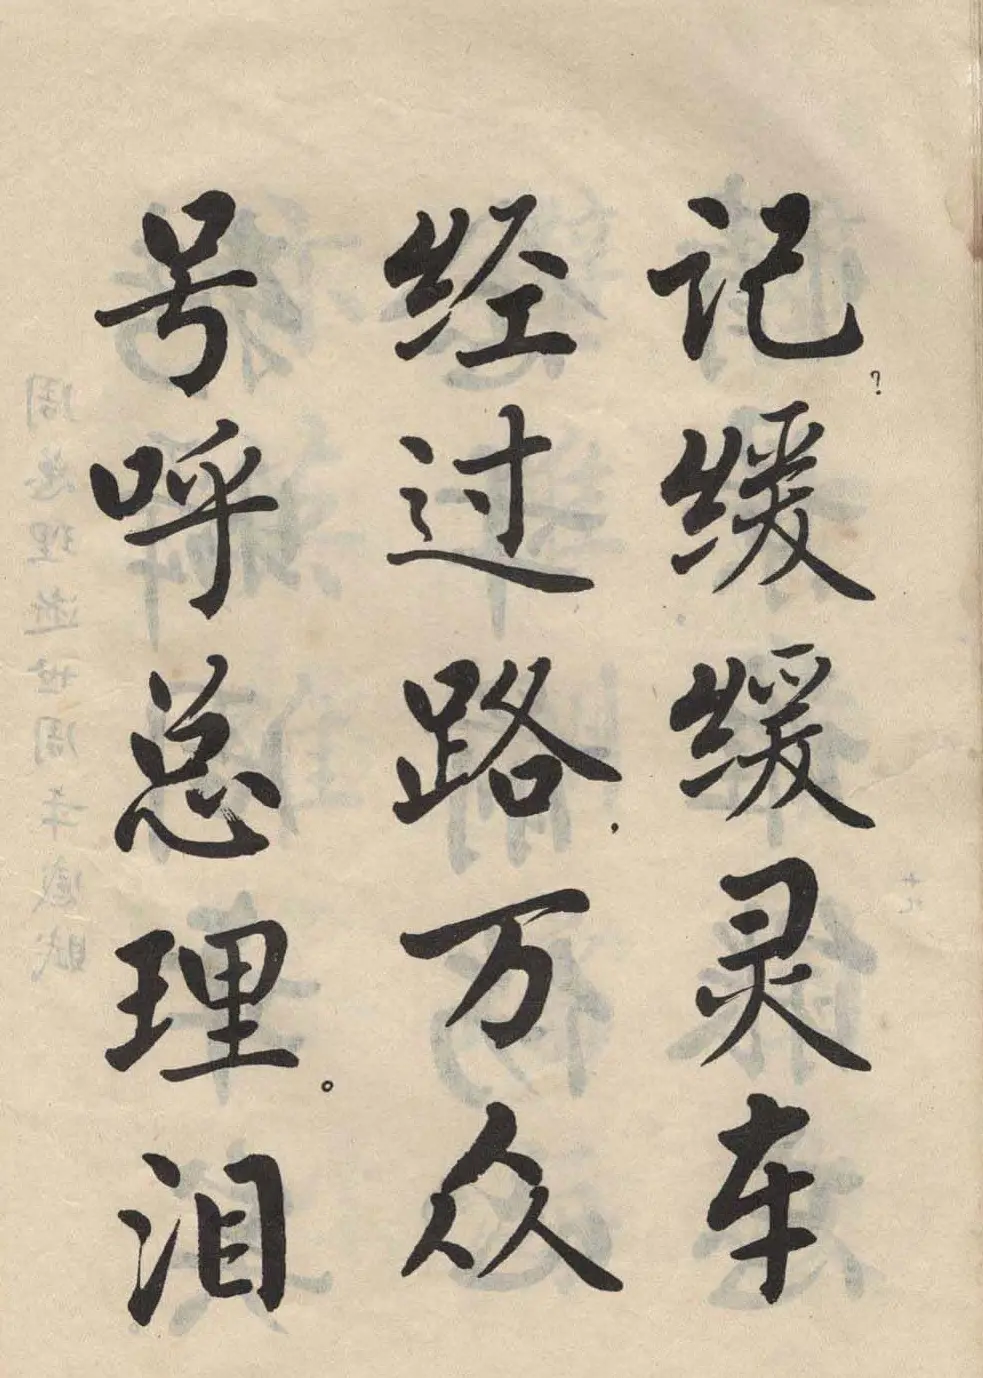 记？缓缓灵车
经过路，万众
号呼总理。泪